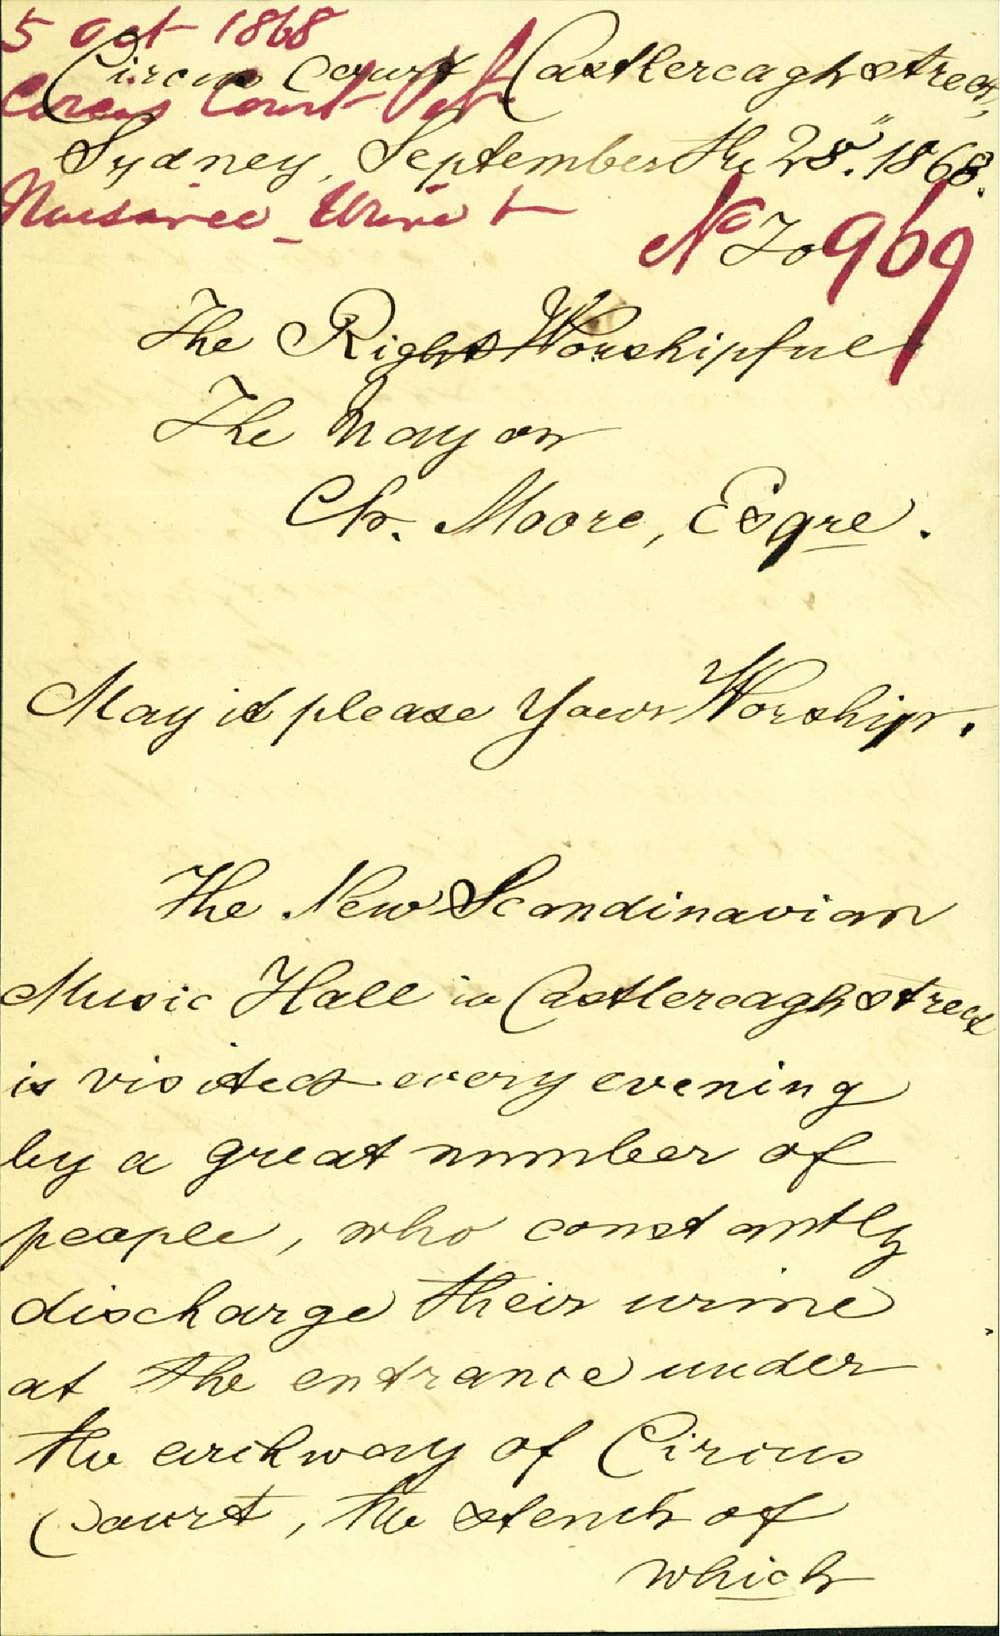 5 Oct 1868
Circus Court, Castlereagh street,
Circus Court
Sydney, September the 28". 1868.
Nuisance _ Urine
No 969
To
The Right Worshipful
The Mayor
Ch. Moore, Esqre.
May it please Your Worship.
The New Scandinavian
Music Hall in Castlereagh street
is visited every evening
by a great number of
people, who constantly
discharge their urine
at the entrance under
the archway of Circus
Court, the stench of
which